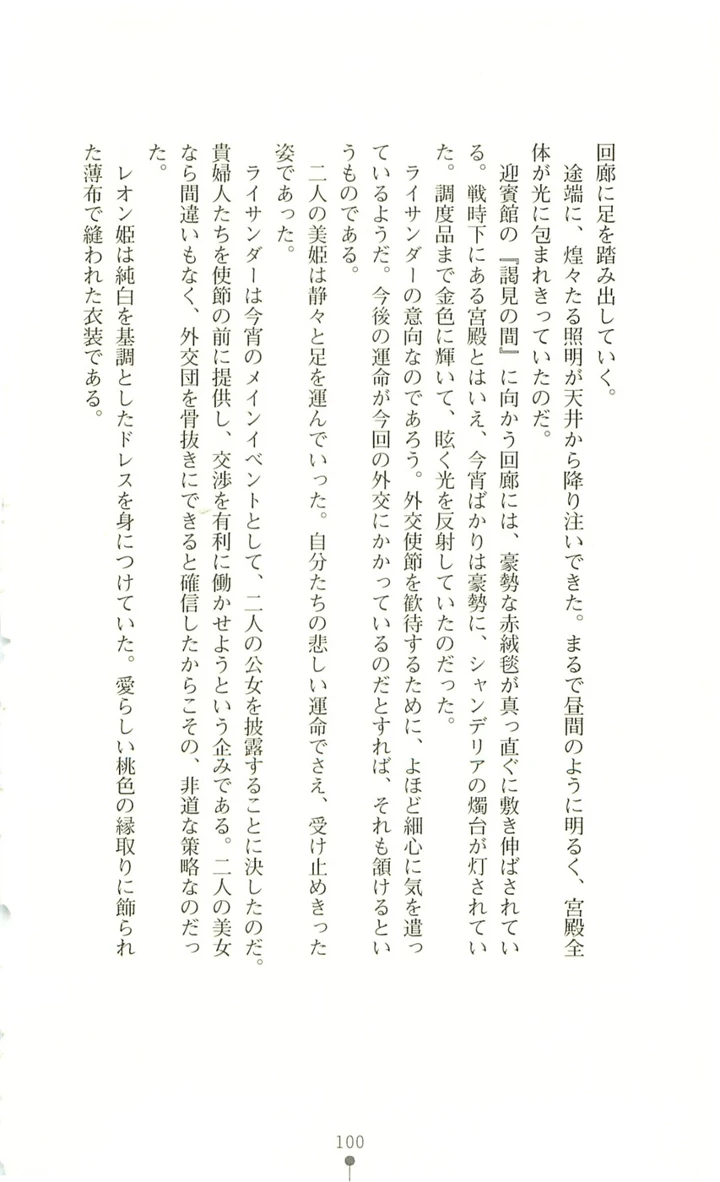 回廊に足を踏み出していく。
　途端に、煌々たる照明が天井から降り注いできた。まるで昼間のように明るく、宮殿全
体が光に包まれきっていたのだ。
　迎賓館の『謁見の間』に向かう回廊には、豪勢な赤絨毯が真っ直ぐに敷き伸ばされてい
る。戦時下にある宮殿とはいえ、今宵ばかりは豪勢に、シャンデリアの燭台が灯されてい
た。調度品まで金色に輝いて、眩く光を反射していたのだった。
　ライサンダーの意向なのであろう。外交使節を歓待するために、よほど細心に気を遣っ
ているようだ。今後の運命が今回の外交にかかっているのだとすれば、それも頷けるとい
うものである。
　二人の美姫は静々と足を運んでいった。自分たちの悲しい運命でさえ、受け止めきった
姿であった。
　ライサンダーは今宵のメインイベントとして、二人の公女を披露することに決したのだ。
貴婦人たちを使節の前に提供し、交渉を有利に働かせようという企みである。二人の美女
なら間違いもなく、外交団を骨抜きにできると確信したからこその、非道な策略なのだっ
た。
　レオン姫は純白を基調としたドレスを身につけていた。愛らしい桃色の縁取りに飾られ
た薄布で縫われた衣装である。
100